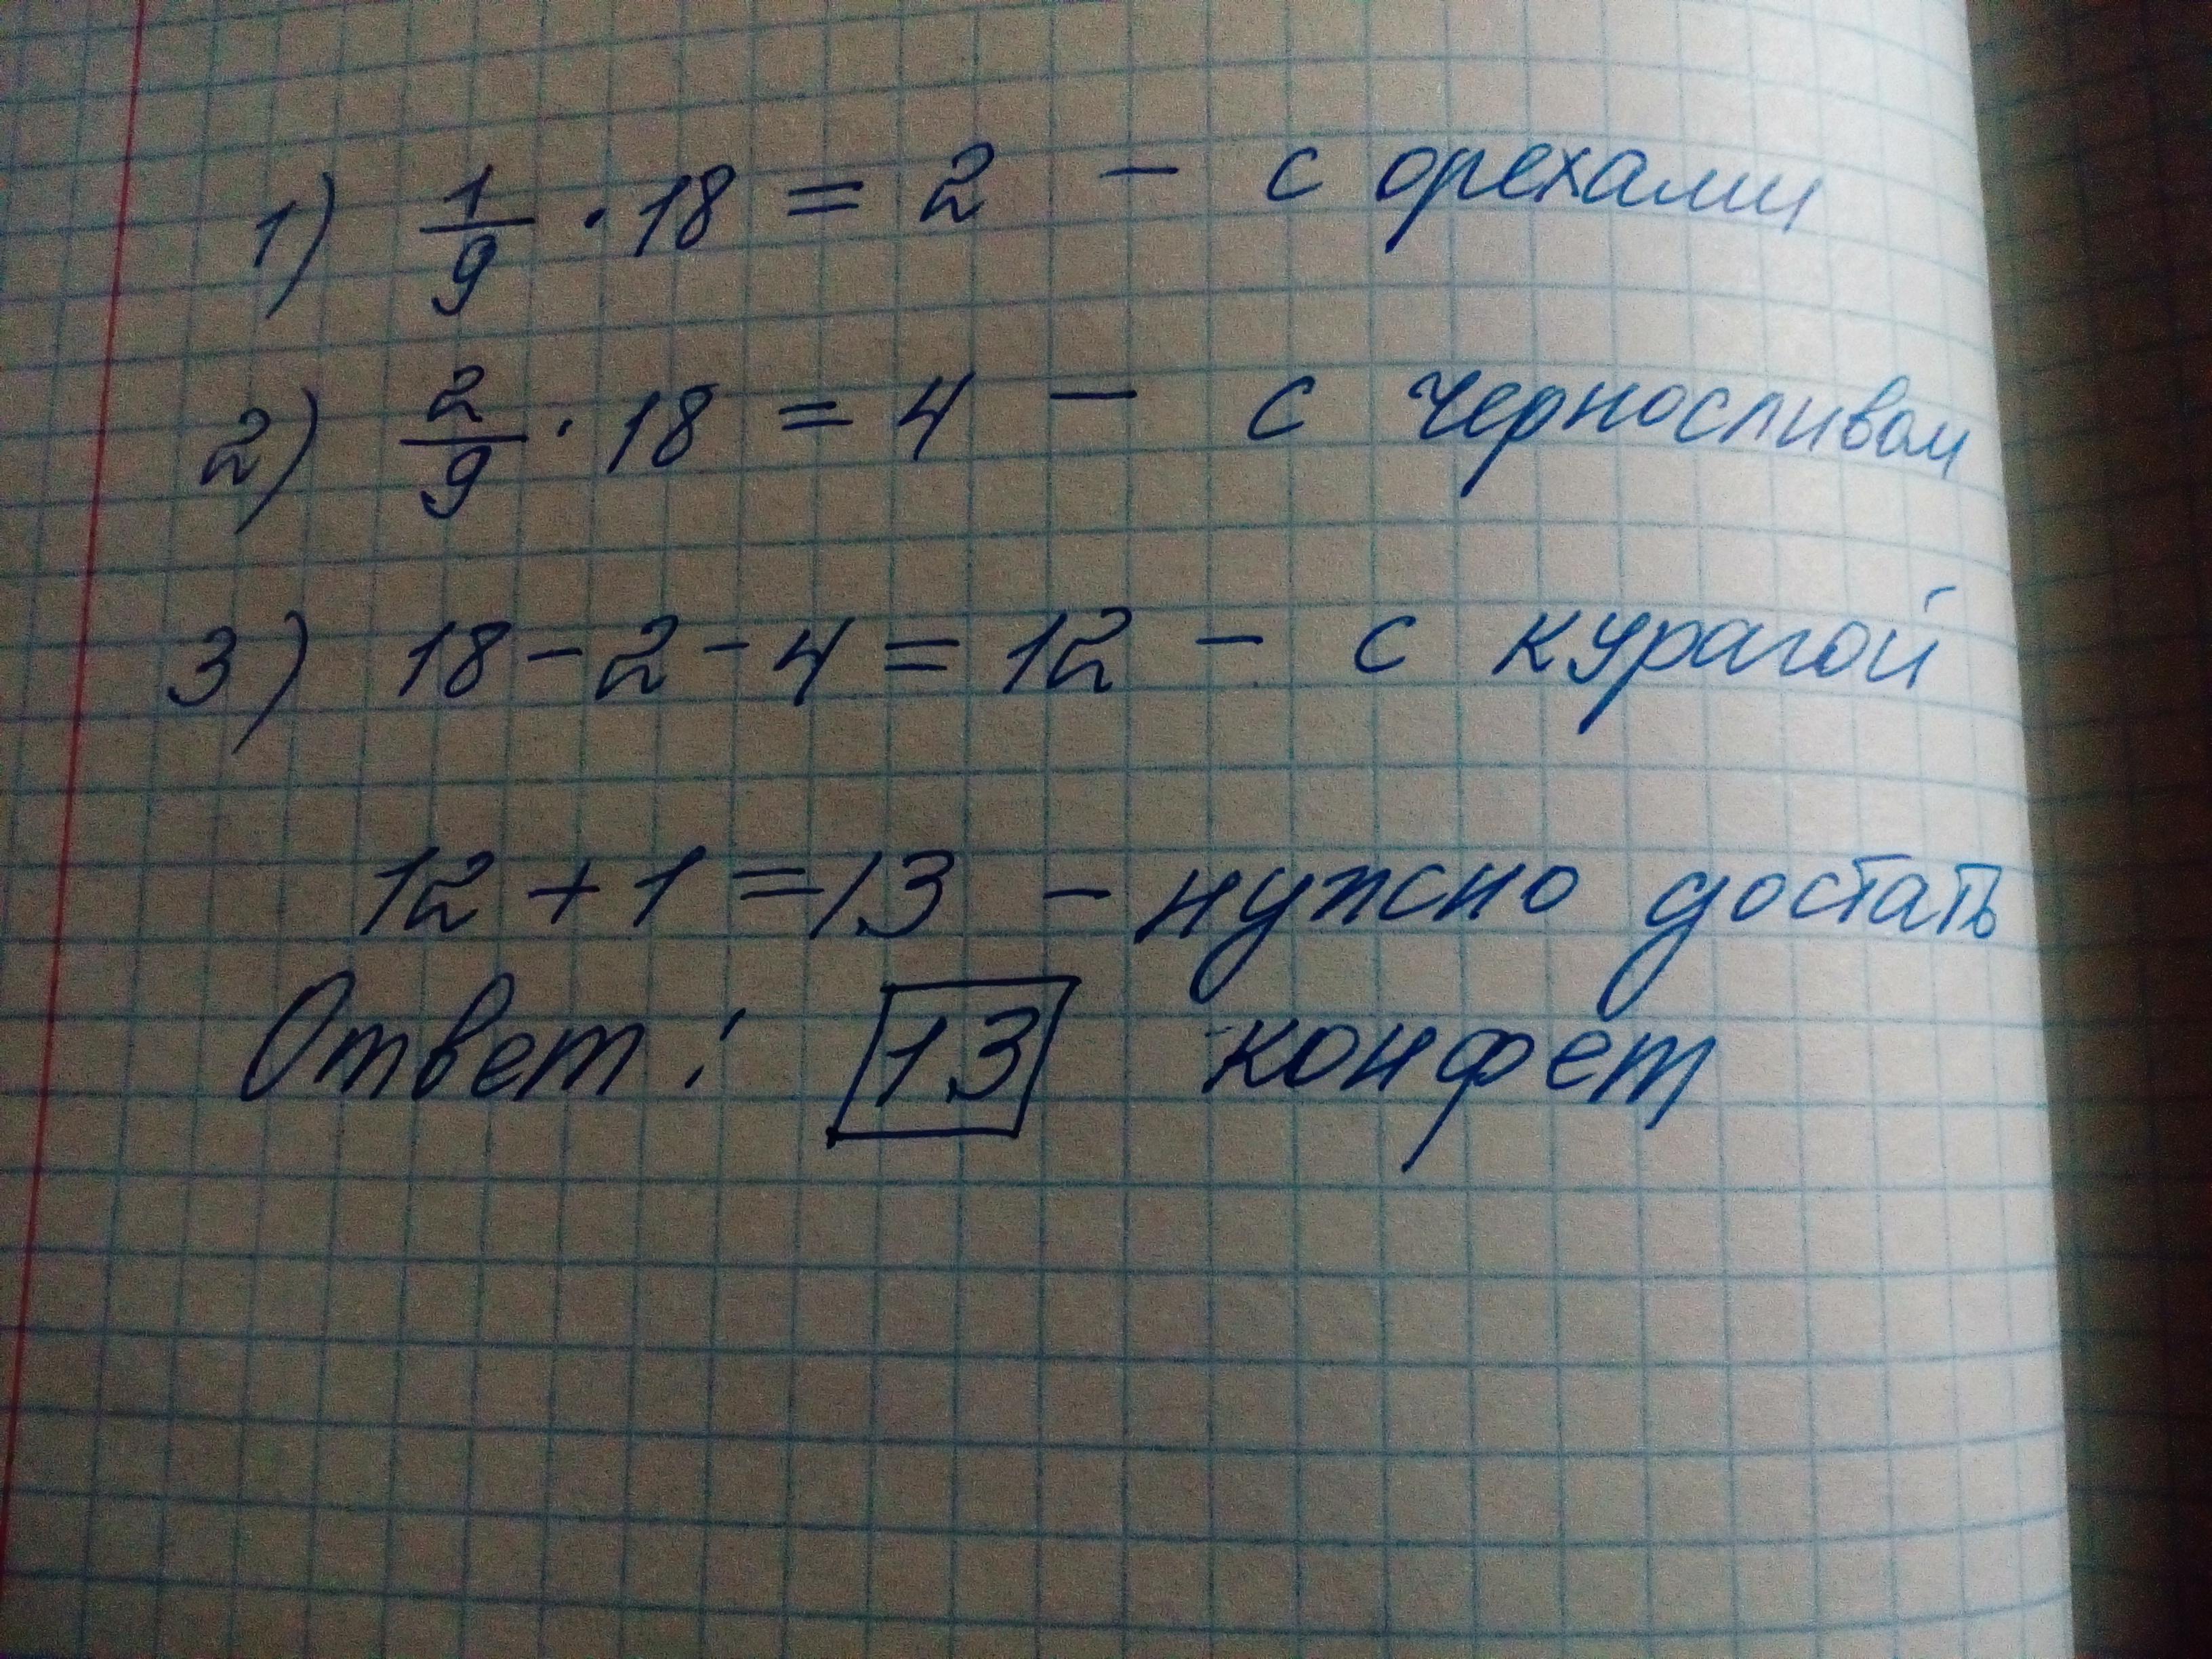 1) 1/9 · 18 = 2 - с орехами
2) 2/9 · 18 = 4 - с черносливом
3) 18 - 2 - 4 = 12 - с курагой
12 + 1 = 13 - нужно достать
Ответ: 13 конфет